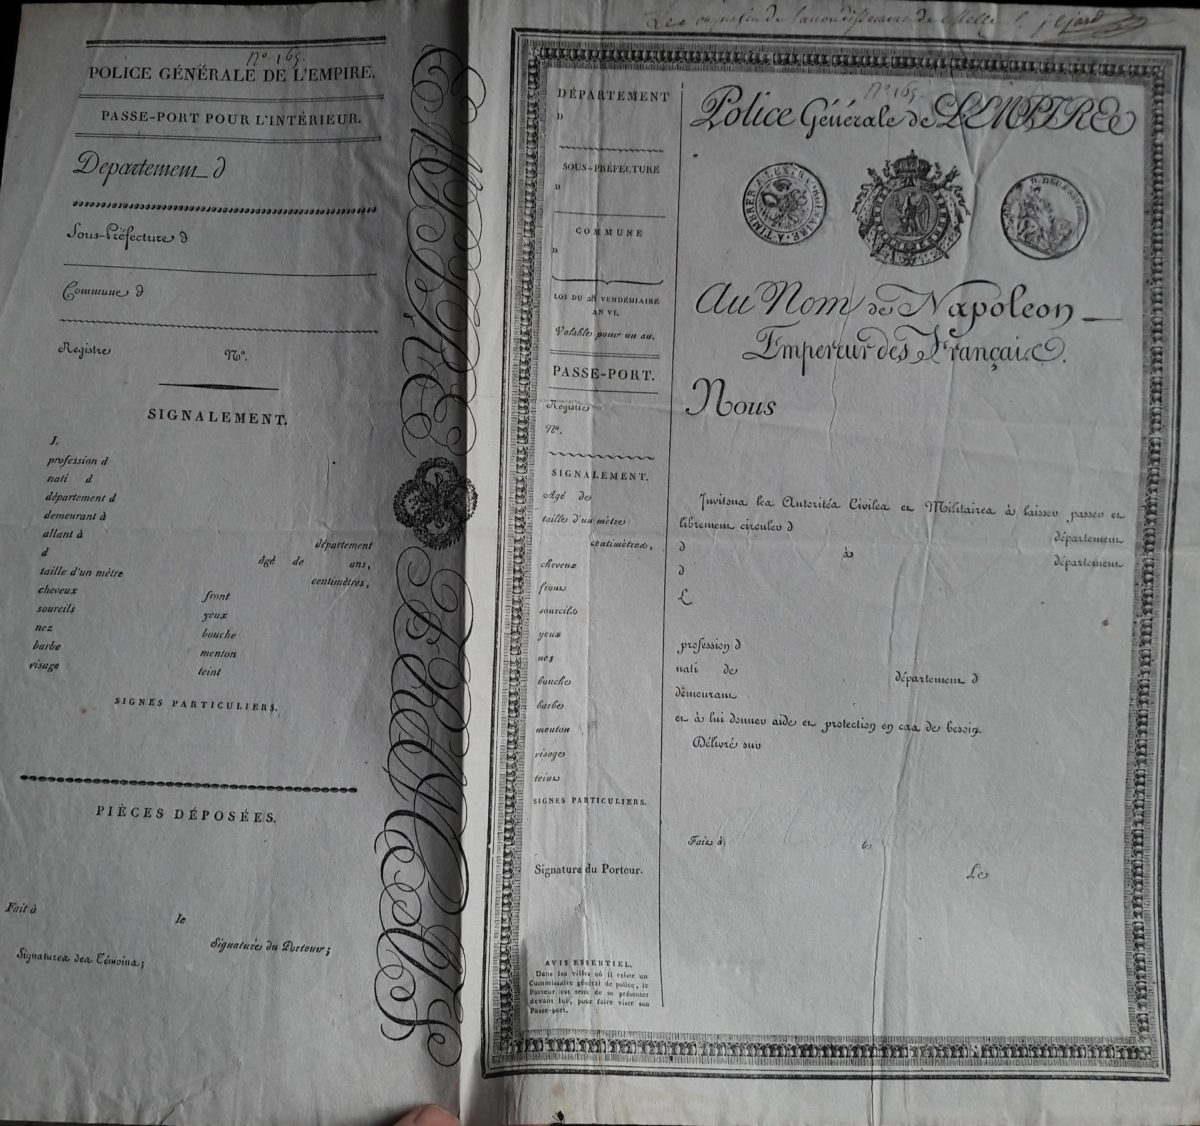 Nº. 165.
POLICE GÉNÉRALE DE L'EMPIRE.
PASSE-PORT POUR L'INTÉRIEUR.
Departement d
Sous-Préfecture d
Commune d
Registre Nº.
SIGNALEMENT.
J.
profession d
nati d
département d
demeurant à
allant à
département
d âgé de ans,
taille d'un mètre centimètres,
cheveux front
sourcils yeux
nez bouche
barbe menton
visage teint
SIGNES PARTICULIERS.
PIÈCES DÉPOSÉES.
Fait à le
Signature du Porteur;
Signatures des Témoins;
EMPIRE FRANÇAIS
de l'arrondissement de Melle
DÉPARTEMENT
D
SOUS-PRÉFECTURE
D
COMMUNE
D
LOI DU 28 VENDÉMIAIRE
AN VI.
Valable pour un an.
PASSE-PORT.
Registre
Nº.
SIGNALEMENT.
Agé de
taille d'un mètre
centimètres,
cheveux
front
sourcils
yeux
nez
bouche
barbe
menton
visage
teint
SIGNES PARTICULIERS.
Signature du Porteur.
AVIS ESSENTIEL.
Dans les villes où il existe un
Commissaire général de police, le
Porteur est tenu de se présenter
devant lui, pour faire viser son
Passe-port.
Nº. 165.
Police Générale de L'EMPIRE
A TIMBRER A L'EXTRAORDINAIRE.
Au Nom de Napoleon
Empereur des Français.
Nous
Invitons les Autorités Civiles et Militaires à laisser passer et
librement circuler d département
d à département
d
L
profession d
nati de département d
demeurant
et à lui donner aide et protection en cas de besoin.
Délivré sur
Fait à le
Le